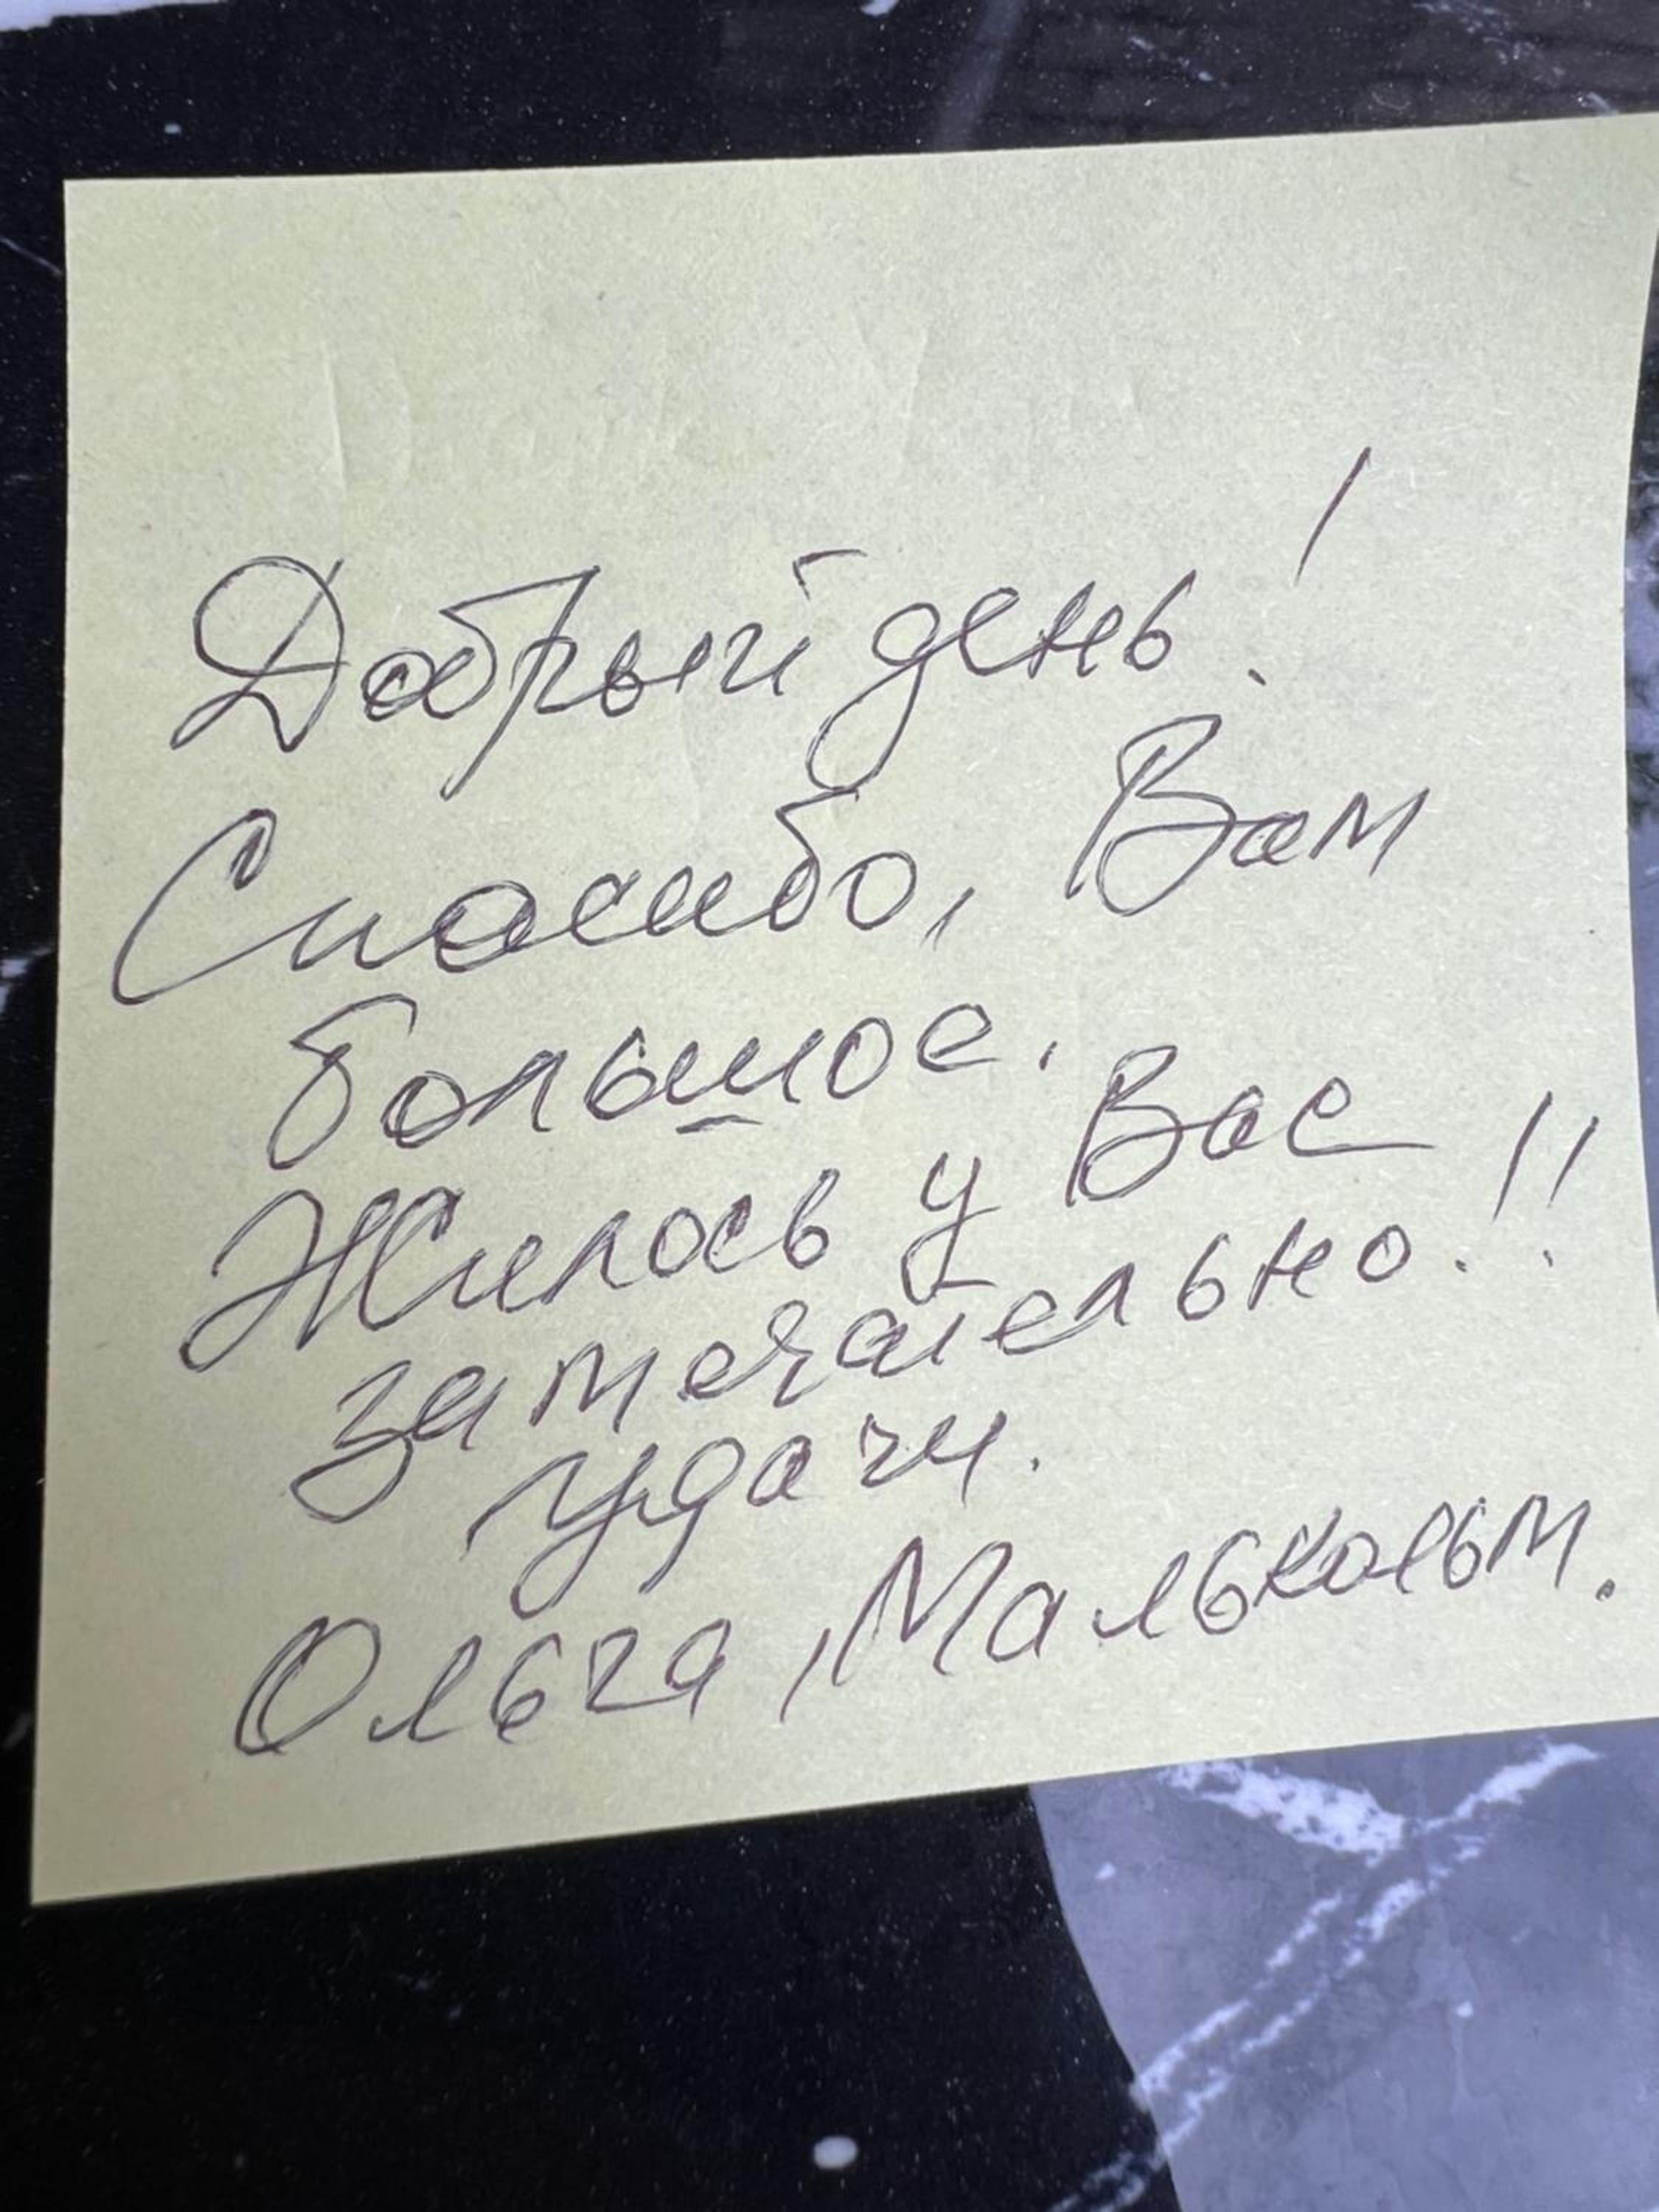 Добрый день!
Спасибо, Вам
большое.
Жилось у Вас
замечательно!!
Удачи.
Ольга, Малькольм.